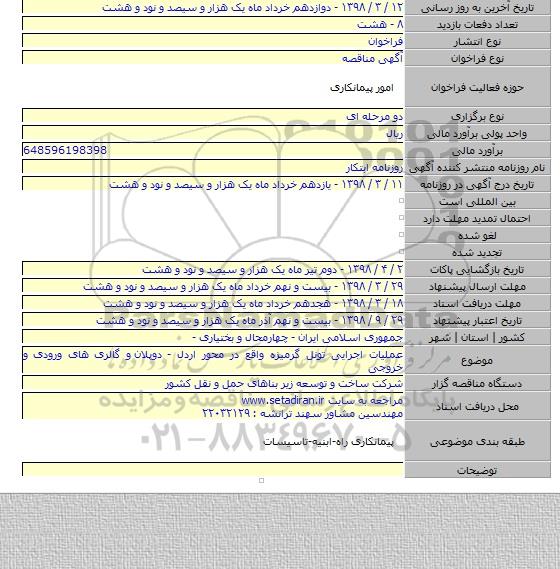 تاریخ آخرین به روز رسانی ۱۲ / ۳ / ۱۳۹۸ - دوازدهم خرداد ماه یک هزار و سیصد و نود و هشت
تعداد دفعات بازدید ۸ - هشت
نوع انتشار فراخوان
نوع فراخوان آگهی مناقصه
حوزه فعالیت فراخوان امور پیمانکاری
نوع برگزاری دو مرحله ای
واحد پولی برآورد مالی ریال
برآورد مالی 648596198398
نام روزنامه منتشر کننده آگهی روزنامه ابتکار
تاریخ درج آگهی در روزنامه ۱۱ / ۳ / ۱۳۹۸ - یازدهم خرداد ماه یک هزار و سیصد و نود و هشت
بین المللی است
احتمال تمدید مهلت دارد
لغو شده
تجدید شده
تاریخ بازگشایی پاکات ۲ / ۴ / ۱۳۹۸ - دوم تیر ماه یک هزار و سیصد و نود و هشت
مهلت ارسال پیشنهاد ۲۹ / ۳ / ۱۳۹۸ - بیست و نهم خرداد ماه یک هزار و سیصد و نود و هشت
مهلت دریافت اسناد ۱۸ / ۳ / ۱۳۹۸ - هجدهم خرداد ماه یک هزار و سیصد و نود و هشت
تاریخ اعتبار پیشنهاد ۲۹ / ۹ / ۱۳۹۸ - بیست و نهم آذر ماه یک هزار و سیصد و نود و هشت
کشور | استان | شهر جمهوری اسلامی ایران - چهارمحال و بختیاری -
موضوع عملیات اجرایی تونل گرمیزه واقع در محور اردل - دوپلان و گالری های ورودی و
خروجی
دستگاه مناقصه گزار شرکت ساخت و توسعه زیر بناهای حمل و نقل کشور
محل دریافت اسناد مراجعه به سایت www.setadiran.ir
مهندسین مشاور سهند ترانشه : ۲۲۰۳۲۱۲۹
طبقه بندی موضوعی پیمانکاری راه-ابنیه-تاسیسات
توضیحات
ParsNamadData
پایگاه اطلاع رسانی مناقصه و مزایده
۰۲۱-۸۸۳۴۹۶۷۰-۵